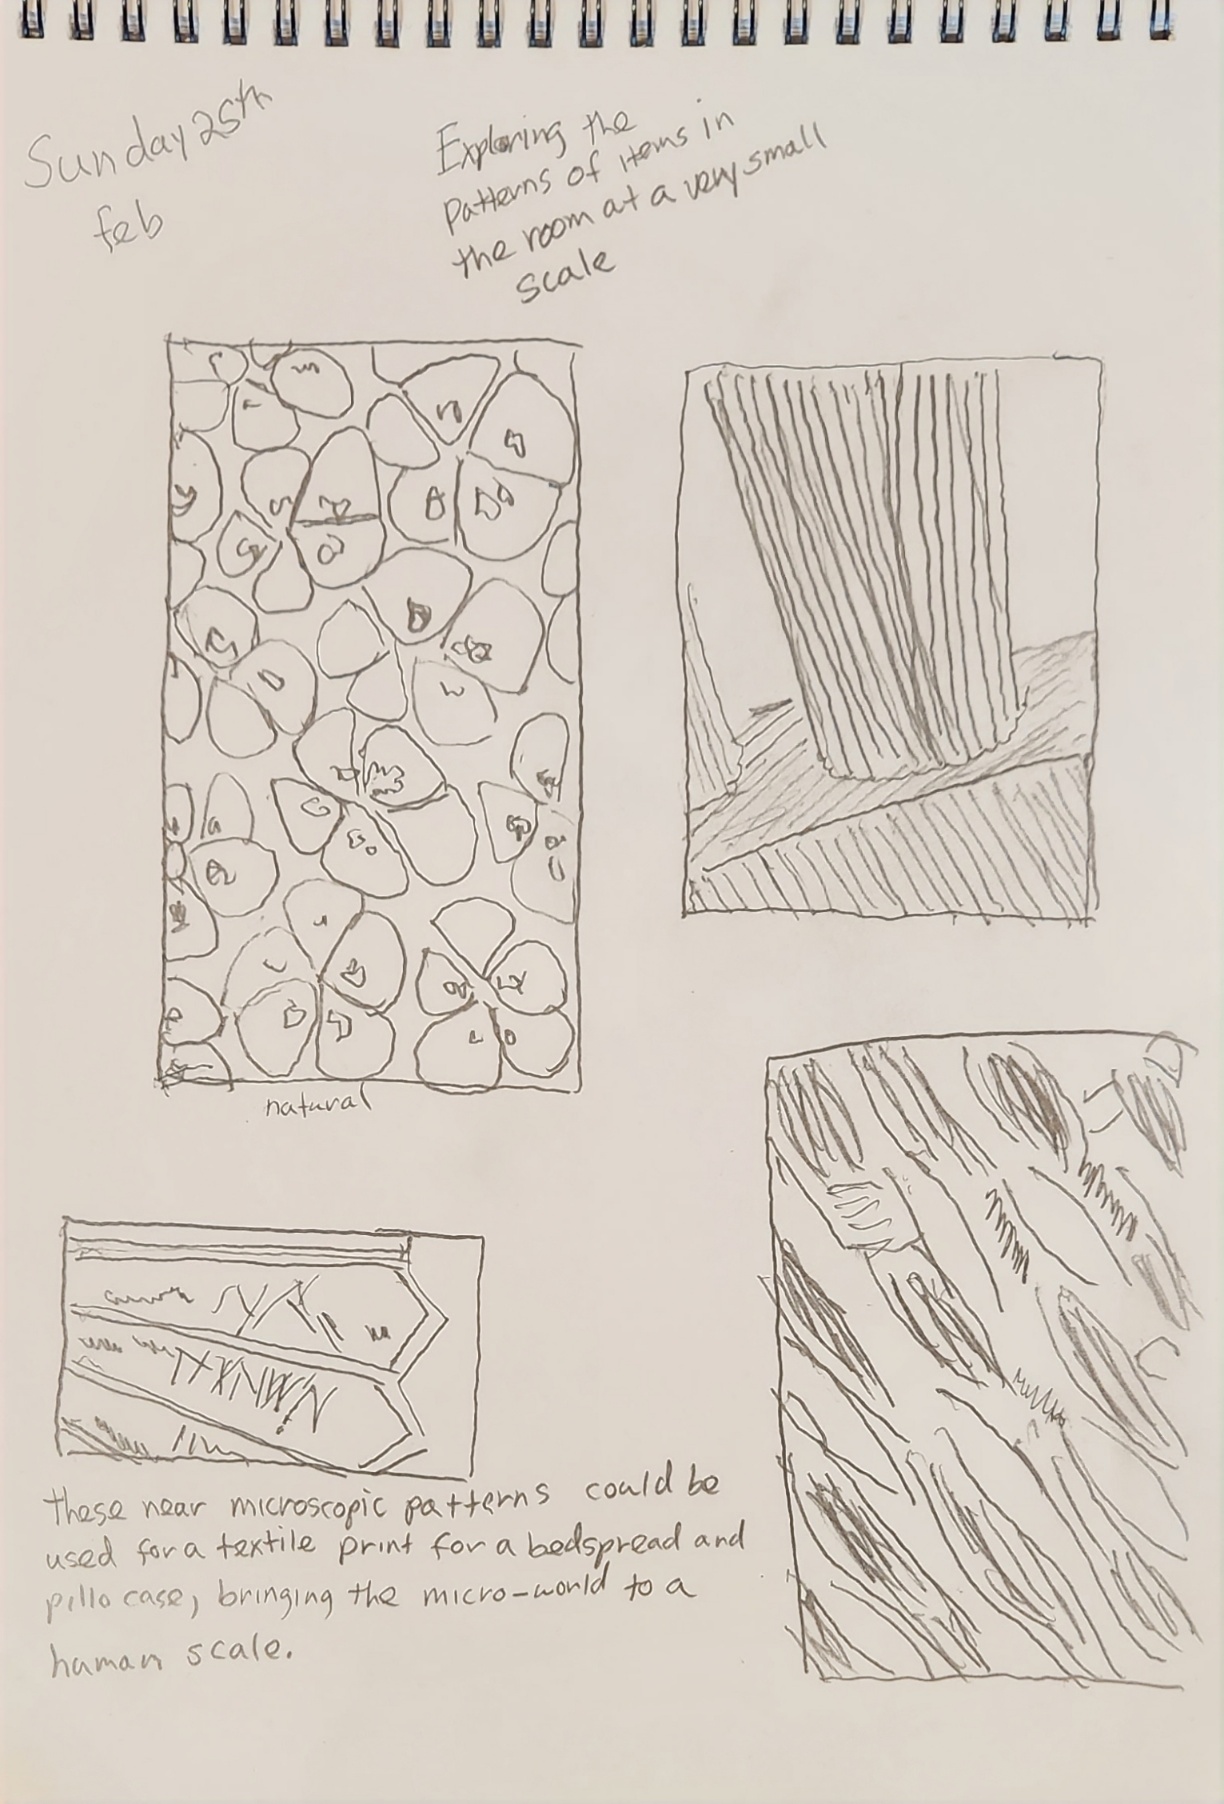 Sunday 25th
feb
Exploring the
patterns of items in
the room at a very small
scale
natural
these near microscopic patterns could be
used for a textile print for a bedspread and
pillo case, bringing the micro-world to a
human scale.